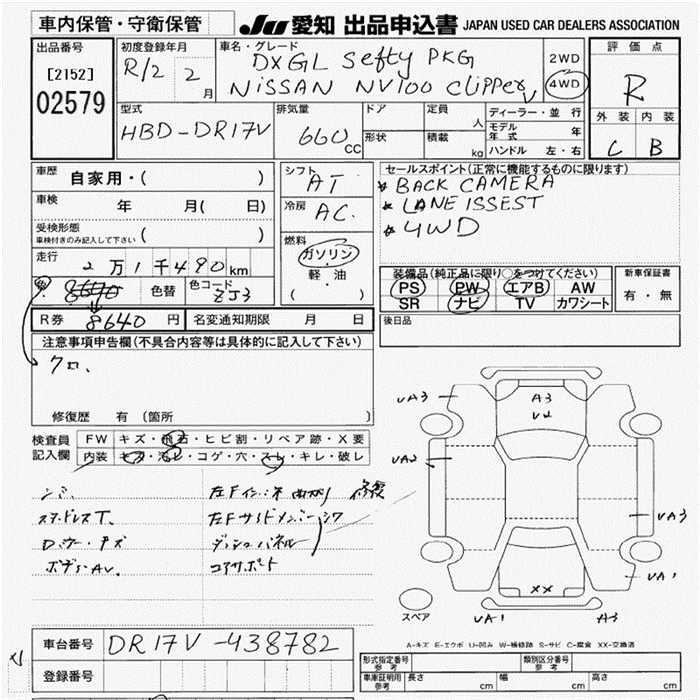 車内保管・守衛保管
JU 愛知 出品申込書 JAPAN USED CAR DEALERS ASSOCIATION
出品番号
[2152]
02579
初度登録年月
R/2 2
月
車名・グレード
DXGL Sefty PKG
NISSAN NV100 Clipper
2WD
4WD
評価点
R
外装 内装
C B
型式
HBD-DR17V
排気量
660
CC
ドア
形状
定員
人
積載
kg
ディーラー・並行
モデル年式 年
ハンドル 左・右
車歴
自家用・( )
車検
年 月( 日)
受検形態
車検付きのみ記入して下さい ( )
走行
2万1千490km
色替 色コード ZJ3
シフト
AT
冷房
AC.
燃料
ガソリン
軽・油
( )
セールスポイント(正常に機能するものに限ります)
BACK CAMERA
LANE ISSEST
4WD
装備品(純正品に限り○をつけてください)
PS PW エアB AW
SR ナビ TV カワシート
新車保証書
有・無
R券 8640 円 名変通知期限 月 日
後日品
注意事項申告欄(不具合内容等は具体的に記入して下さい)
クロ、
修復歴 有 (箇所 )
検査員
記入欄
FW キズ・飛石・ヒビ割・リペア跡・X要
内装 キズ・汚レ・コゲ・穴・スレ・キレ・破レ
シミ、
スタッドレスT、
ボディーAU、
左Fインナー曲がり 修復
左Fサイドメンバーシワ
ダッシュパネル
コアサポート
UA3
A3
U2
UA2
UA3
UA1
XX
UA1
A3
スペア
A-キズ E-エクボ U-凹み W-補修跡 S-サビ C-腐食 XX-交換済
車台番号 DR17V-438782
登録番号
形式指定番号
参考
類別区分番号
参考
車庫証明用
参考
長さ cm 幅 cm 高さ cm